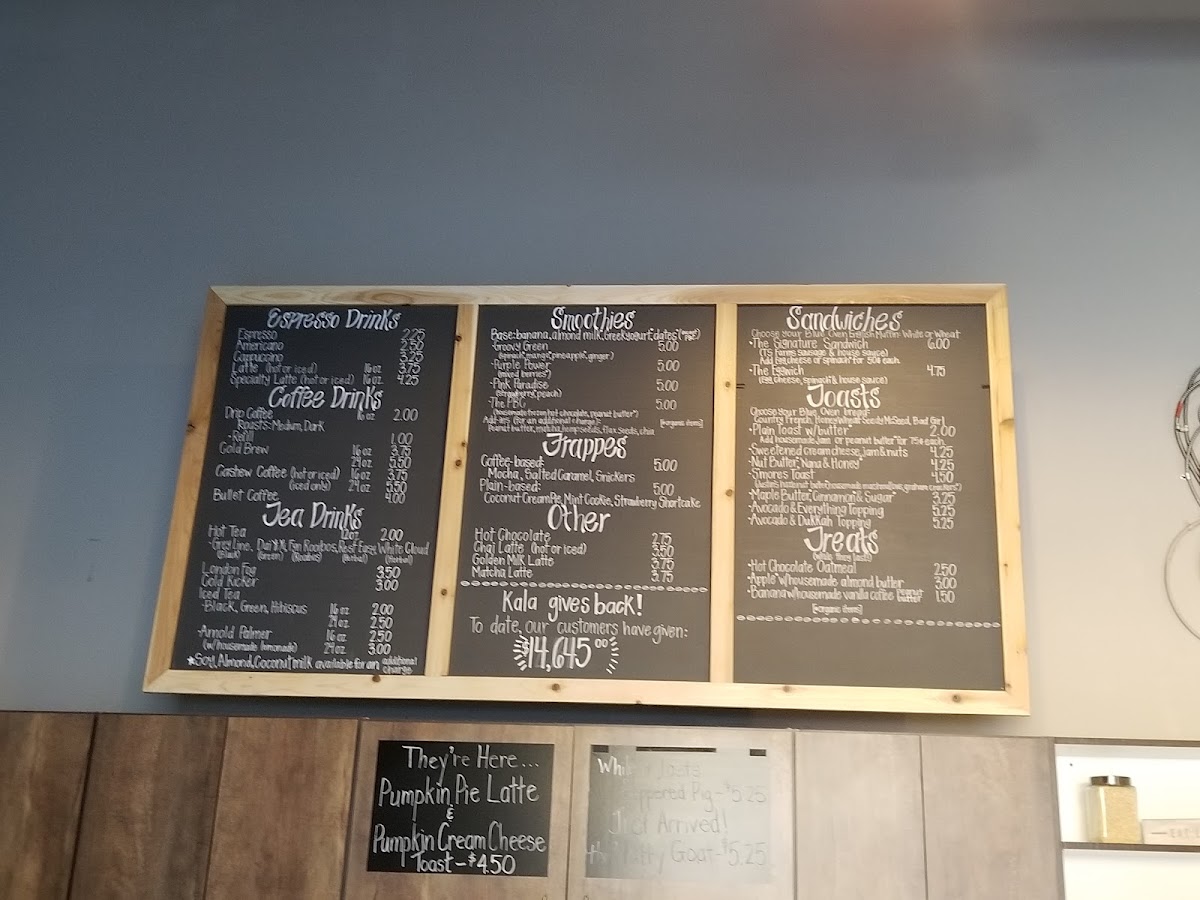 Espresso Drinks
Espresso 2.25
Americano 2.50
Cappuccino 3.25
Latte (hot or iced) 16oz. 3.75
Specialty Latte (hot or iced) 16oz. 4.25
Coffee Drinks
Drip Coffee 16 oz 2.00
Roasts: Medium, Dark
-Refill 1.00
Cold Brew 16 oz 3.75
24 oz. 5.50
Cashew Coffee (hot or iced) 16oz 3.75
(iced only) 24 oz 5.50
Bullet Coffee 4.00
Tea Drinks
Hot Tea 12oz. 2.00
London Fog 3.50
Gold Kicker 3.00
Iced Tea
-Black, Green, Hibiscus 16 oz 2.00
24 oz. 2.50
-Arnold Palmer 16 oz 2.50
(w/housemade lemonade) 24oz. 3.00
★Soy, Almond, Coconut milk available for an additional charge
Smoothies
Base: banana, almond milk, Greek yogurt, dates*
-Groovy Green 5.00
(spinach, mango*, pineapple*, ginger)
-Purple Power 5.00
(mixed berries*)
-Pink Paradise 5.00
(strawberry, peach)
-The PBC 5.00
(housemade frozen hot chocolate, peanut butter*)
Add-ins (for an additional charge): [*organic items]
Peanut butter, matcha, hemp seeds, flax seeds, chia
Frappes
Coffee-based: 5.00
Mocha, Salted Caramel, Snickers
Plain-based: 5.00
Coconut Cream Pie, Mint Cookie, Strawberry Shortcake
Other
Hot Chocolate 2.75
Chai Latte (hot or iced) 3.50
Golden Milk Latte 3.75
Matcha Latte 3.75
Kala gives back!
To date, our customers have given:
$14,645.00
Sandwiches
Choose your Blue Oven English Muffin: White or Wheat
-The Signature Sandwich 6.00
(TS Farms sausage & house sauce)
Add egg, cheese or spinach* for 50¢ each.
-The Eggwich 4.75
(egg, cheese, spinach* & house sauce)
Toasts
Choose Your Blue Oven bread-
Country French, Honey Wheat, Seedy McSeed, Bad Girl
-Plain Toast w/butter 2.00
Add housemade jam or peanut butter* for 75¢ each.
-Sweetened cream cheese, jam & nuts 4.25
-Nut Butter, Nana & Honey* 4.25
-S'mores Toast 4.50
-Maple Butter, Cinnamon & Sugar* 3.25
-Avocado & Everything Topping 5.25
-Avocado & Dukkah Topping 5.25
Treats
(while they last)
-Hot Chocolate Oatmeal 2.50
-Apple* w/housemade almond butter 3.00
-Banana w/housemade vanilla coffee peanut butter 1.50
[*organic items]
They're Here...
Pumpkin Pie Latte
&
Pumpkin Cream Cheese
Toast - $4.50
Pig - $5.25
Just Arrived!
Goat - $5.25